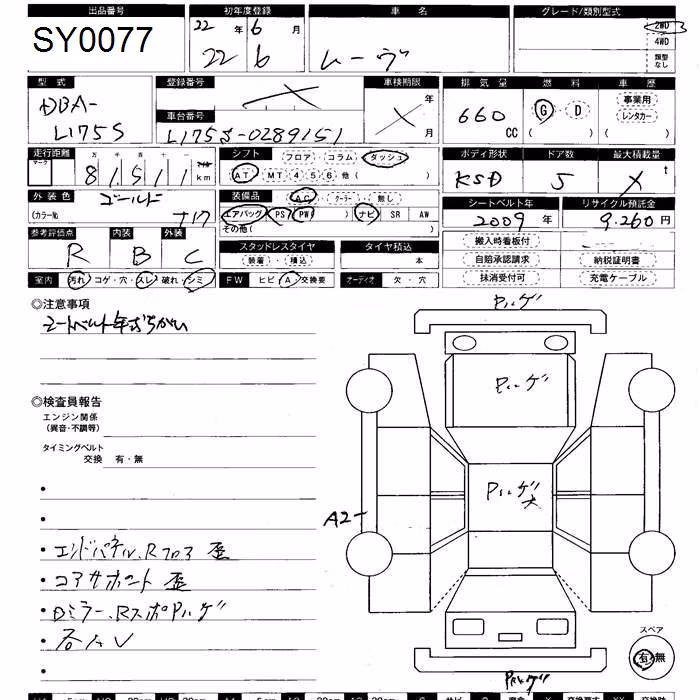 出品番号 初年度登録 車名 グレード/類別型式
SY0077 22年 6月 ムーヴ 2WD
22 6 4WD
類型なし
型式 登録番号 車検期限 排気量 燃料 車歴
DBA- × × 年 月 660 CC G・D 事業用
L175S 車台番号 ( ) レンタカー ( )
L175S-0289151
走行距離 シフト フロア・コラム・ダッシュ ボディ形状 ドア数 最大積載量
マーク 万 千 百 十 マイル
81511 km AT MT 4 5 6 他 ( ) 5 × t
外装色 ゴールド 装備品 AC・クーラー・無し シートベルト年 リサイクル預託金
(カラーNo. ) エアバッグ PS PW ( ) ナビ SR AW 2009年 9.260円
その他 ( )
参考評価点 内装 外装 スタッドレスタイヤ タイヤ積込 搬入時看板付
R B C 装着・積込 本 自賠承認請求 納税証明書
室内 汚れ・コゲ・穴・スレ・破れ・シミ FW ヒビ・A・交換要 オーディオ 欠・穴 抹消受付可 充電ケーブル
◎注意事項
シートベルト年式ちがい
◎検査員報告
エンジン関係
(異音・不調等)
タイミングベルト
交換 有・無
・エンドパネル、Rフロア 歪
・コアサポート 歪
・Dミラー、RスポPハゲ
・各AV
Pハゲ
Pハゲ
Pハゲ大
A2
Pハゲ
スペア
有・無